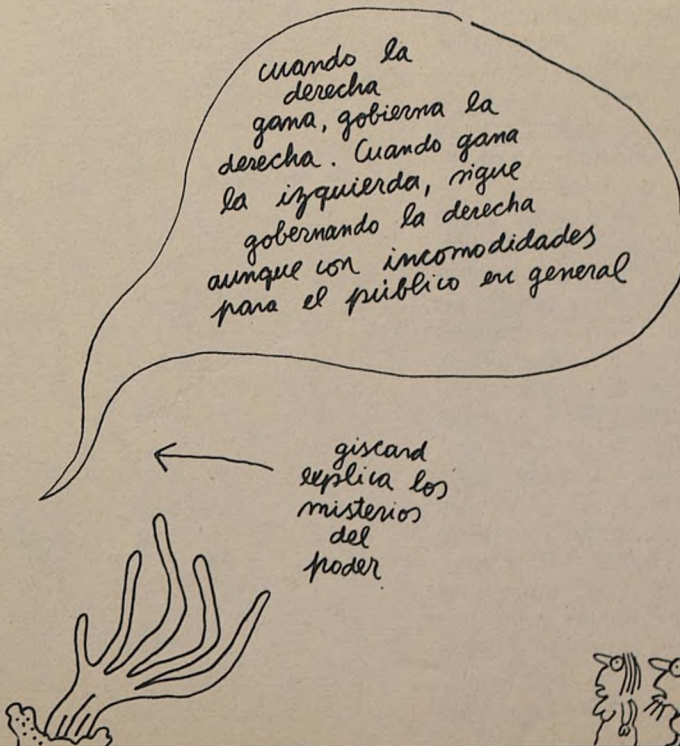 cuando la
derecha
gana, gobierna la
derecha. Cuando gana
la izquierda, sigue
gobernando la derecha
aunque con incomodidades
para el público en general
giscard
explica los
misterios
del
poder